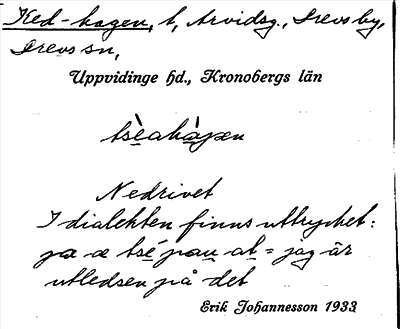 Ked-hagen, t, Arvidsg., Drevs by,
Drevs sn,
Uppvidinge hd., Kronobergs län
tsèahàgen
Nedrivet
I dialekten finns uttrycket:
ja æ tsé pau at = jag är
utledsen på det
Erik Johannesson 1933